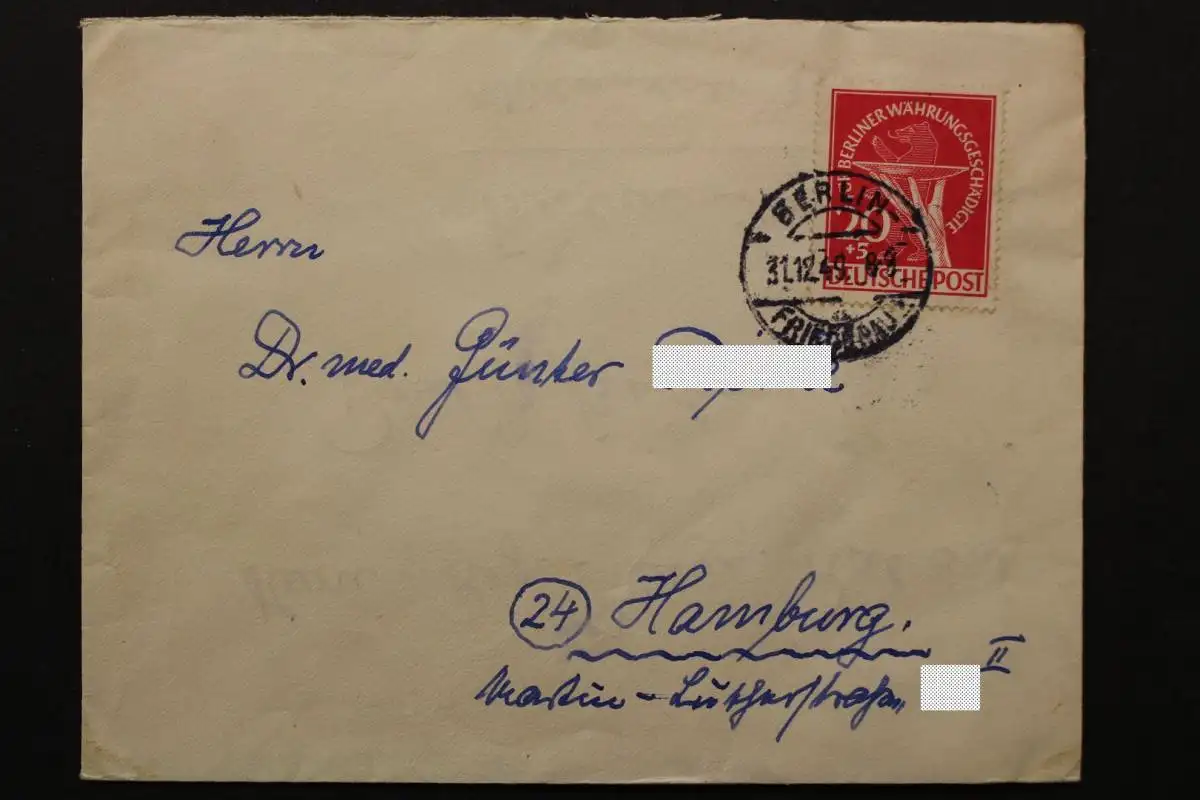 FÜR BERLINER WÄHRUNGSGESCHÄDIGTE
20
+5
DEUTSCHE POST
BERLIN-
31.12.49. 8-9
FRIEDENAU
Herrn
Dr. med. Günter
24 Hamburg. II
Martin-Lutherstraße